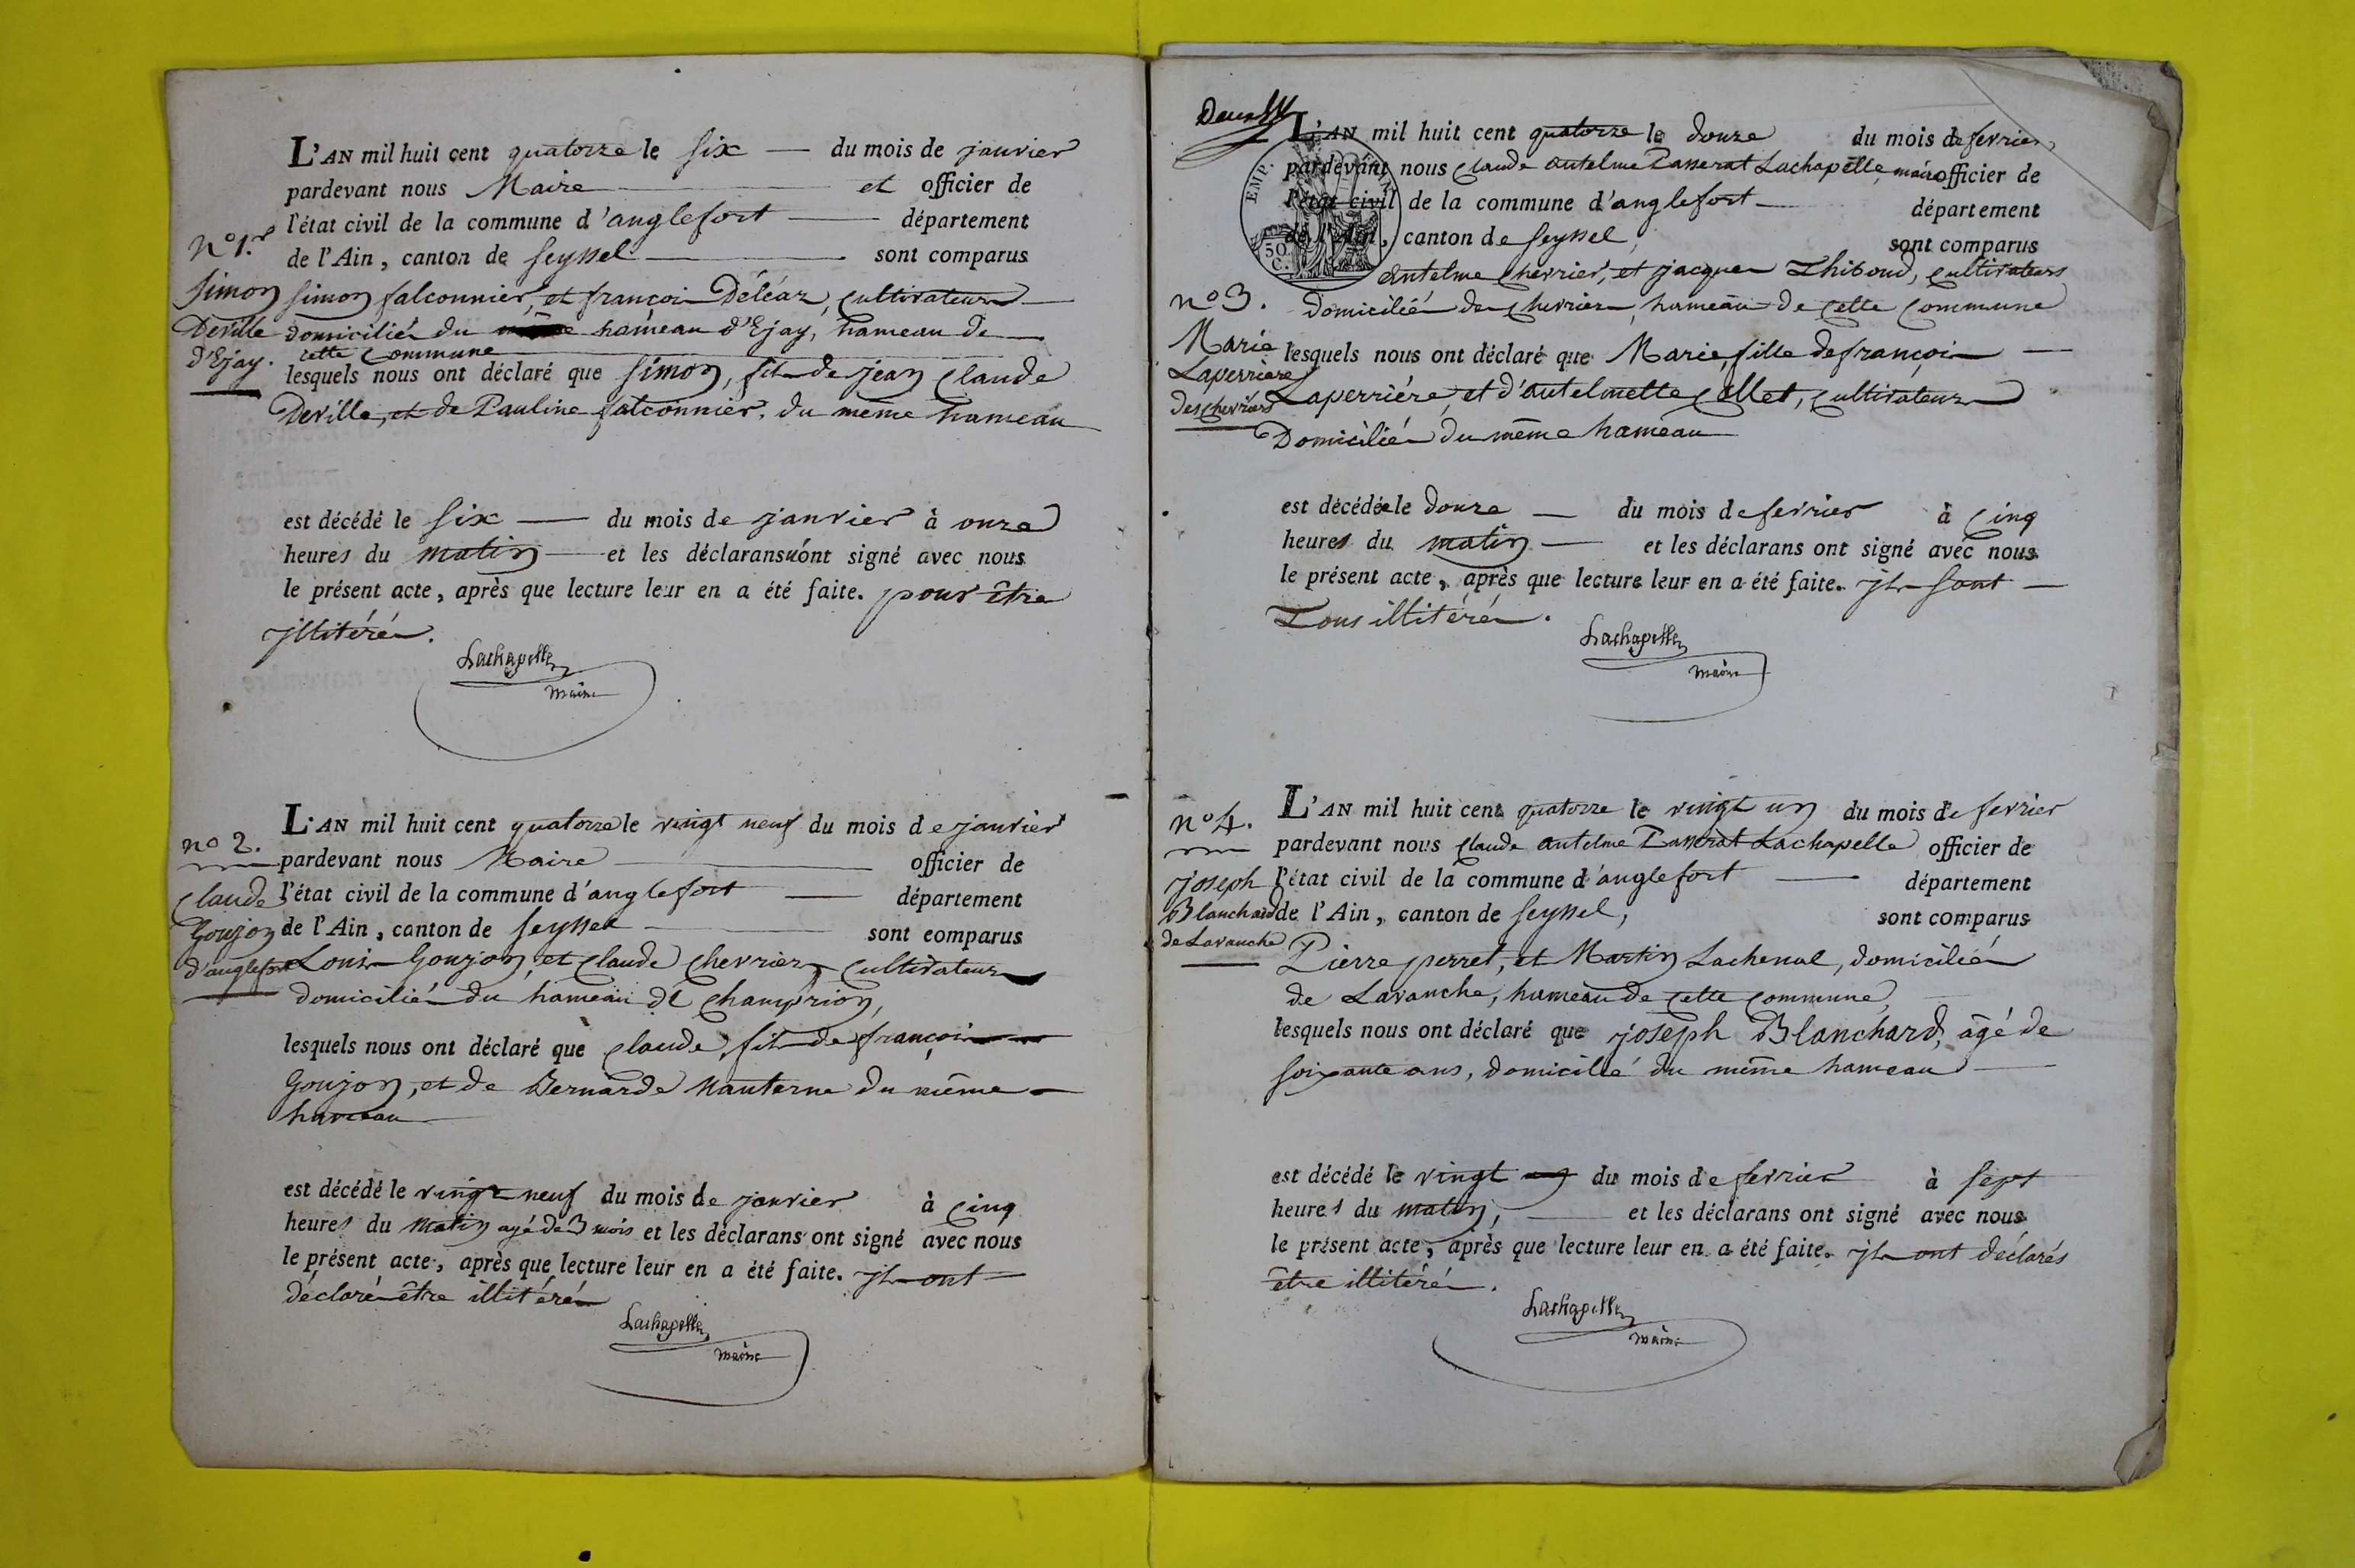 L'AN mil huit cent quatorze le six du mois de janvier
pardevant nous Maire et officier de
l'état civil de la commune d'anglefort département
de l'Ain, canton de seyssel sont comparus
n° 1.er
simon
Deville
d'Ejay.
simon falconnier, et françois Déléaz, cultivateurs
domiciliés du hameau d'Ejay, hameau de
cette commune
lesquels nous ont déclaré que simon, fils de jean claude
Deville, et de Pauline falconnier, du meme hameau
est décédé le six du mois de janvier à onze
heures du matin et les déclarans n'ont signé avec nous
le présent acte, après que lecture leur en a été faite. pour être
illitérés.
Lachapelle
maire
L'AN mil huit cent quatorze le vingt neuf du mois de janvier
n° 2.
claude
Goujon
d'anglefort
pardevant nous Maire officier de
l'état civil de la commune d'anglefort département
de l'Ain, canton de seyssel sont comparus
Louis Goujon, et claude chevrier, cultivateurs
domiciliés du hameau de champrion,
lesquels nous ont déclaré que claude, fils de françois
Goujon, et de Bernarde Nanterne du même
hameau
est décédé le vingt neuf du mois de janvier à cinq
heures du matin agé de 3 mois et les déclarans ont signé avec nous
le présent acte, après que lecture leur en a été faite. ils ont
déclaré être illitérés
Lachapelle
maire
L'AN mil huit cent quatorze le douze du mois de fevrier,
pardevant nous claude antelme Passerat Lachapelle, maire officier de
l'état civil de la commune d'anglefort département
de l'Ain, canton de seyssel, sont comparus
EMP.
50
C.
n° 3.
Marie
Laperriere
des chevriers
antelme chevrier, et jacques Thiboud, cultivateurs
domiciliés des chevriers, hameau de cette commune
lesquels nous ont déclaré que Marie, fille de françois
Laperriére, et d'antelmette Collet, cultivateurs
Domiciliés du même hameau
est décédée le douze du mois de fevrier à cinq
heures du matin et les déclarans ont signé avec nous
le présent acte, après que lecture leur en a été faite. ils sont
Tous illitérés.
Lachapelle
maire
n° 4.
joseph
Blanchard
de Lavanche
L'AN mil huit cent quatorze le vingt un du mois de fevrier
pardevant nous claude antelme Passerat Lachapelle officier de
l'état civil de la commune d'anglefort département
de l'Ain, canton de seyssel, sont comparus
Pierre perret, et Martin Lachenal, domiciliés
de Lavanche, hameau de cette commune,
lesquels nous ont déclaré que joseph Blanchard, âgé de
soixante ans, domicilié du même hameau
est décédé le vingt un du mois de fevrier à sept
heures du matin, et les déclarans ont signé avec nous
le présent acte, après que lecture leur en a été faite. ils ont déclarés
être illitérés.
Lachapelle
maire